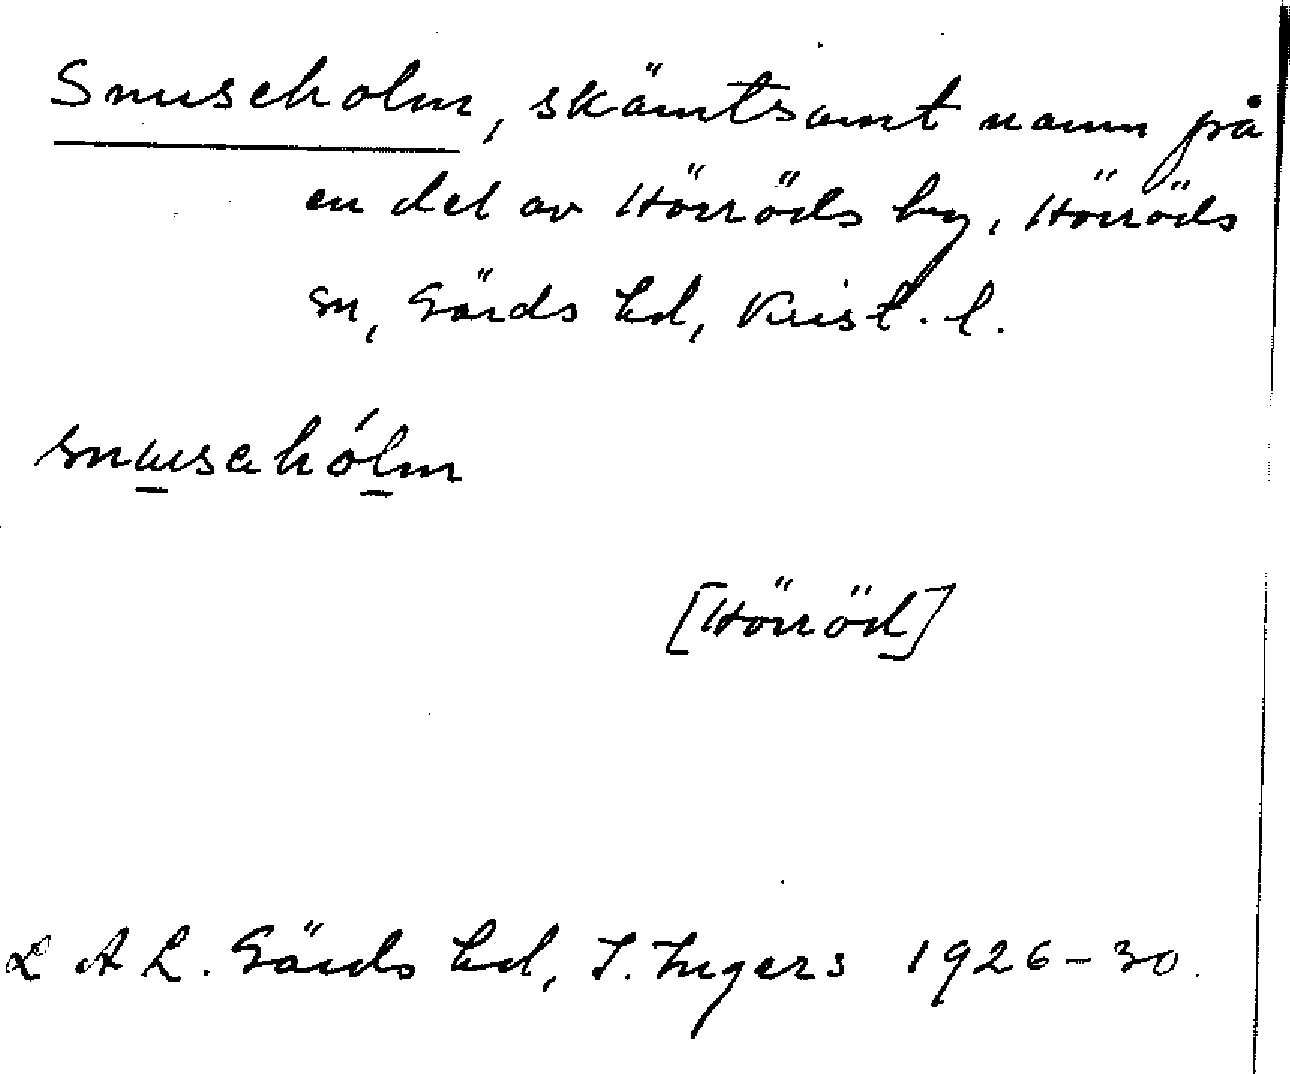 Snuseholm, skämtsamt namn på
en del av Hörröds by, Hörröds
sn, Gärds hd, Krist. l.
snɯsahólm
[Hörröd]
L A L. Gärds hd, I. Ingers 1926-30.